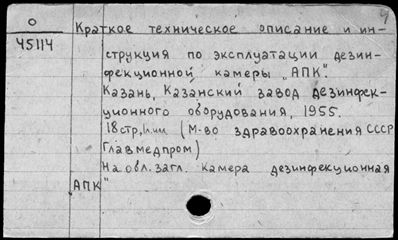 9
О
45114
Краткое техническое описание и ин-
струкция по эксплуатации дезин-
фекционной камеры „АПК".
Казань, Казанский завод дезинфек-
ционного оборудования, 1955.
18 стр., илл (М-во здравоохранения СССР
Главмедпром)
На обл. загл. Камера дезинфекционная
„АПК"